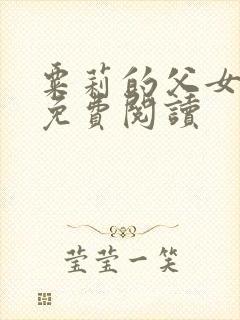 粟莉的父女
免費閱讀
莹莹一笑